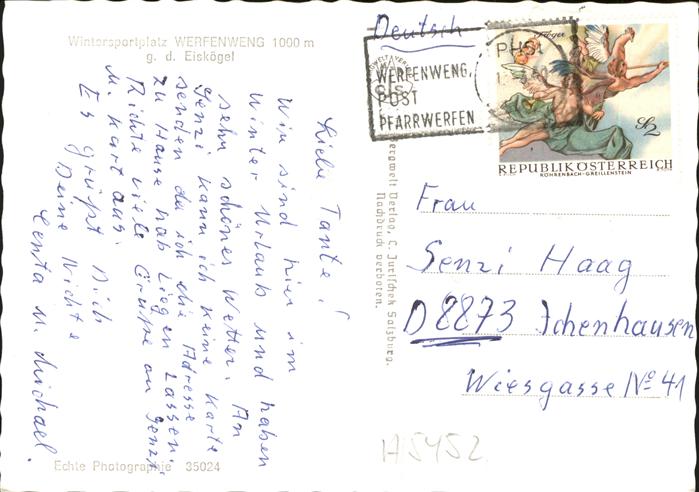 Wintersportplatz WERFENWENG 1000 m
g. d. Eiskögel
Liebe Tante!
Wir sind hier im
Winter Urlaub und haben
sehr schönes Wetter. An
Genzi kann ich keine Karte
senden da ich die Adresse
zu Hause hab liegen lassen.
Richte viele Grüße an Genzi
u. Kart aus.
Es grüßt dich
Deine Nichte
Centa u. Michael.
Echte Photographie 35024
Bergwelt Verlag, C. Jurischek Salzburg.
Nachdruck verboten.
Deutsch
WERFENWENG,
POST
PFARRWERFEN
S2
REPUBLIK ÖSTERREICH
ROHRENBACH-GREILLENSTEIN
Frau
Senzi Haag
D 8873 Ichenhausen
Wiesgasse No 41
A5452